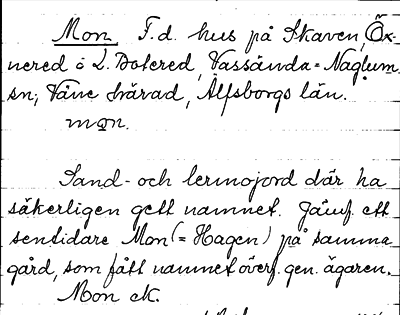 Mon. F.d. hus på Skaven, Öx-
nered ö L. Botered, Vassända-Naglum
sn; Väne härad, Älfsborgs län.
mɷn.
Sand- och lermojord där ha
säkerligen gett namnet. Jämf. ett
sentidare Mon (= Hagen) på samma
gård, som fått namnet överf. gen. ägaren.
Mon ek.